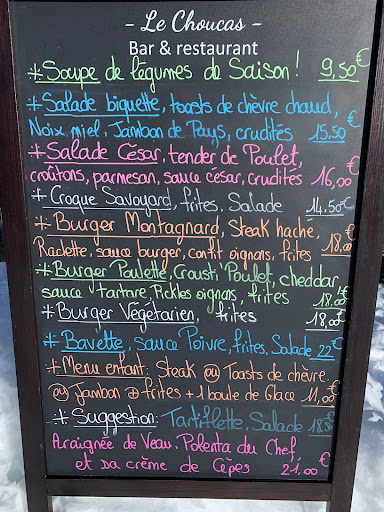 - Le Choucas -
Bar & restaurant
* Soupe de légumes de Saison ! 9,50€
* Salade biquette, toasts de chèvre chaud,
Noix, miel, Jambon de Pays, crudités 15,50€
* Salade César, tender de Poulet,
croûtons, parmesan, sauce césar, crudités 16,00€
* Croque Savoyard, frites, Salade 14,50€
* Burger Montagnard, Steak haché,
Raclette, sauce burger, confit oignons, frites 18,00€
* Burger Poulette, Crousti Poulet, cheddar
sauce tartare, Pickles oignons, frites 18,00€
* Burger Végétarien, frites 18,00€
* Bavette, sauce Poivre, frites, Salade 22€
* Menu enfant: Steak ou Toasts de chèvre
ou Jambon + frites + 1 boule de Glace 11,00€
* Suggestion: Tartiflette, Salade 18,50€
Araignée de Veau. Polenta du Chef,
et sa crème de Cèpes 21,00€